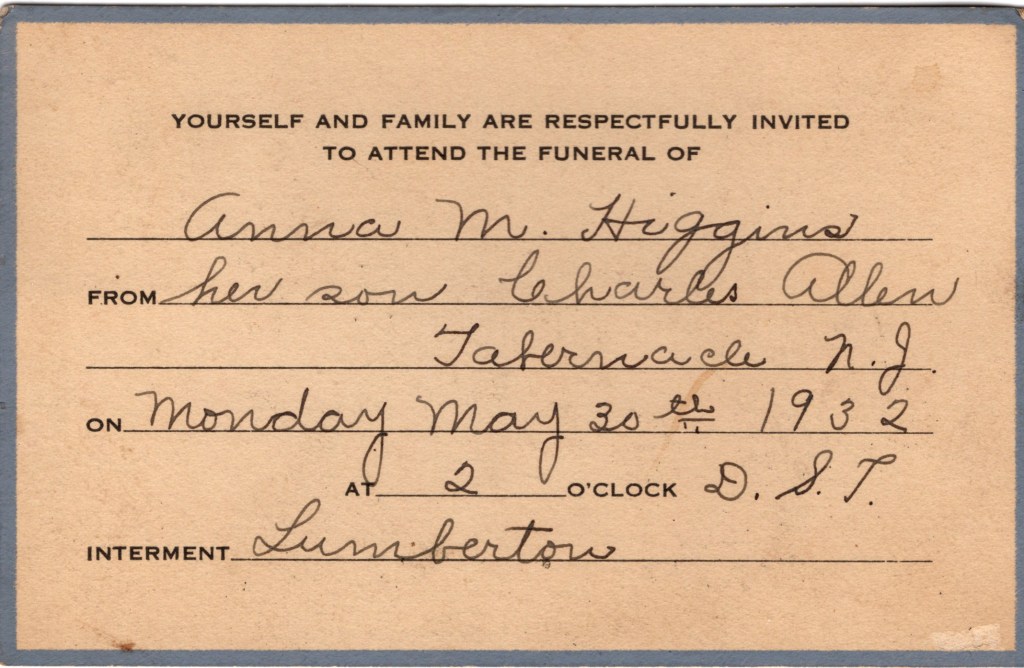 YOURSELF AND FAMILY ARE RESPECTFULLY INVITED
TO ATTEND THE FUNERAL OF
Anna M. Higgins
FROM her son Charles Allen
Tabernacle N.J.
ON Monday May 30th 1932
AT 2 O'CLOCK D. S. T.
INTERMENT Lumberton